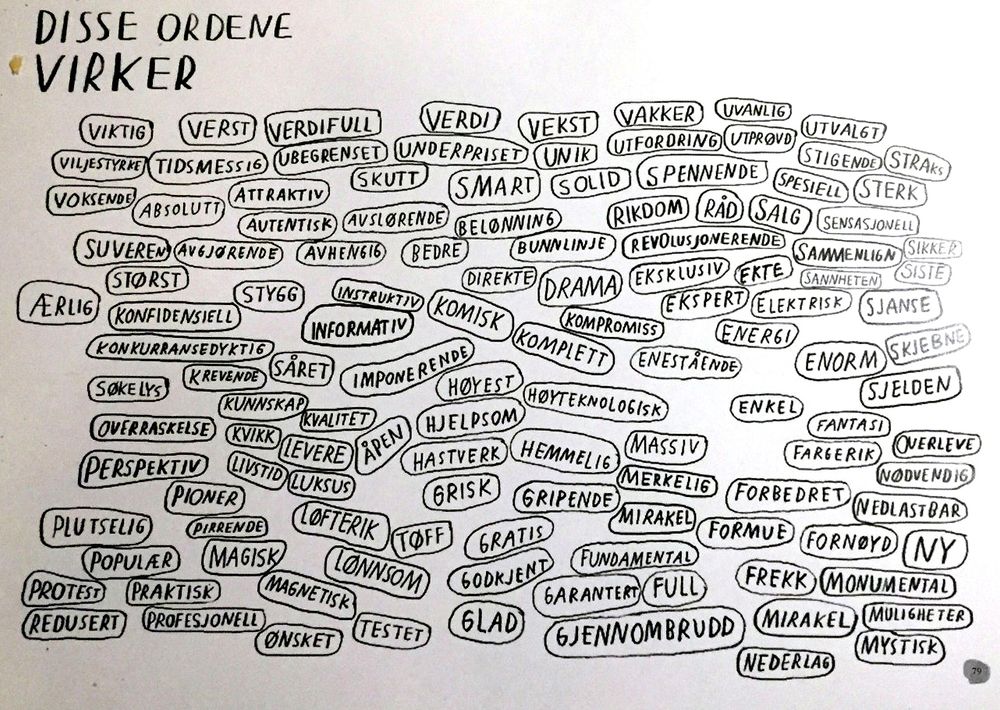 DISSE ORDENE
VIRKER
VIKTIG VERST VERDIFULL VERDI VEKST VAKKER UVANLIG
VILJESTYRKE TIDSMESSIG UBEGRENSET UNDERPRISET UNIK UTFORDRING UTPRØVD UTVALGT
VOKSENDE ABSOLUTT ATTRAKTIV SKUTT SMART SOLID SPENNENDE SPESIELL STIGENDE STRAKS
AUTENTISK AVSLØRENDE BELØNNING RIKDOM RÅD SALG SENSASJONELL STERK
SUVEREN AVGJØRENDE AVHENGIG BEDRE BUNNLINJE REVOLUSJONERENDE SAMMENLIGN SIKKER
STØRST STYGG INSTRUKTIV DIREKTE DRAMA EKSKLUSIV EKTE SANNHETEN SISTE
ÆRLIG KONFIDENSIELL INFORMATIV KOMISK KOMPROMISS EKSPERT ELEKTRISK SJANSE
KONKURRANSEDYKTIG IMPONERENDE KOMPLETT ENESTÅENDE ENERGI ENORM SKJEBNE
SØKELYS KREVENDE SÅRET HØYEST HØYTEKNOLOGISK ENKEL SJELDEN
OVERRASKELSE KUNNSKAP KVALITET HJELPSOM FANTASI
KVIKK LEVERE ÅPEN HASTVERK HEMMELIG MASSIV FARGERIK OVERLEVE
PERSPEKTIV LIVSTID LUKSUS MERKELIG NØDVENDIG
PIONER GRISK GRIPENDE FORBEDRET NEDLASTBAR
PLUTSELIG PIRRENDE LØFTERIK TØFF GRATIS MIRAKEL FORMUE FORNØYD NY
POPULÆR MAGISK LØNNSOM GODKJENT FUNDAMENTAL
PROTEST PRAKTISK MAGNETISK GARANTERT FULL FREKK MONUMENTAL
REDUSERT PROFESJONELL ØNSKET TESTET GLAD GJENNOMBRUDD MIRAKEL MULIGHETER
NEDERLAG MYSTISK
79